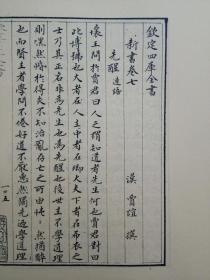 欽定四庫全書
新書卷七
漢 賈誼 撰
先醒 連語
懷王問於賈君曰人之謂知道者先生何也賈君對曰
此博號也大者在人主中者在卿大夫下者在布衣之
士乃其正名非為先生也為先醒也彼世主不學道理
則嘿然惛於得失不知治亂存亡之所由忳忳然猶醉
也而賢主者學問不倦好道不厭惠然獨先迺學道理
一〇五